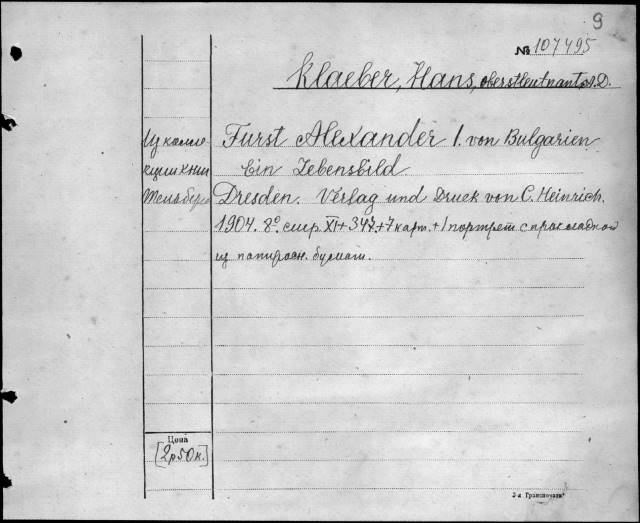 9
№ 107495
Klaeber, Hans, oberstleutnant, a.D.
Из колле- Furst Alexander I. von Bulgarien
кции книг Ein Lebensbild
Dresden. Verlag und Druck von C. Heinrich.
1904. 8º. стр. XI+347+7 карт. + 1 портрет. с прокладкой
из папиросн. бумаги.
Цена
[2р50к.]